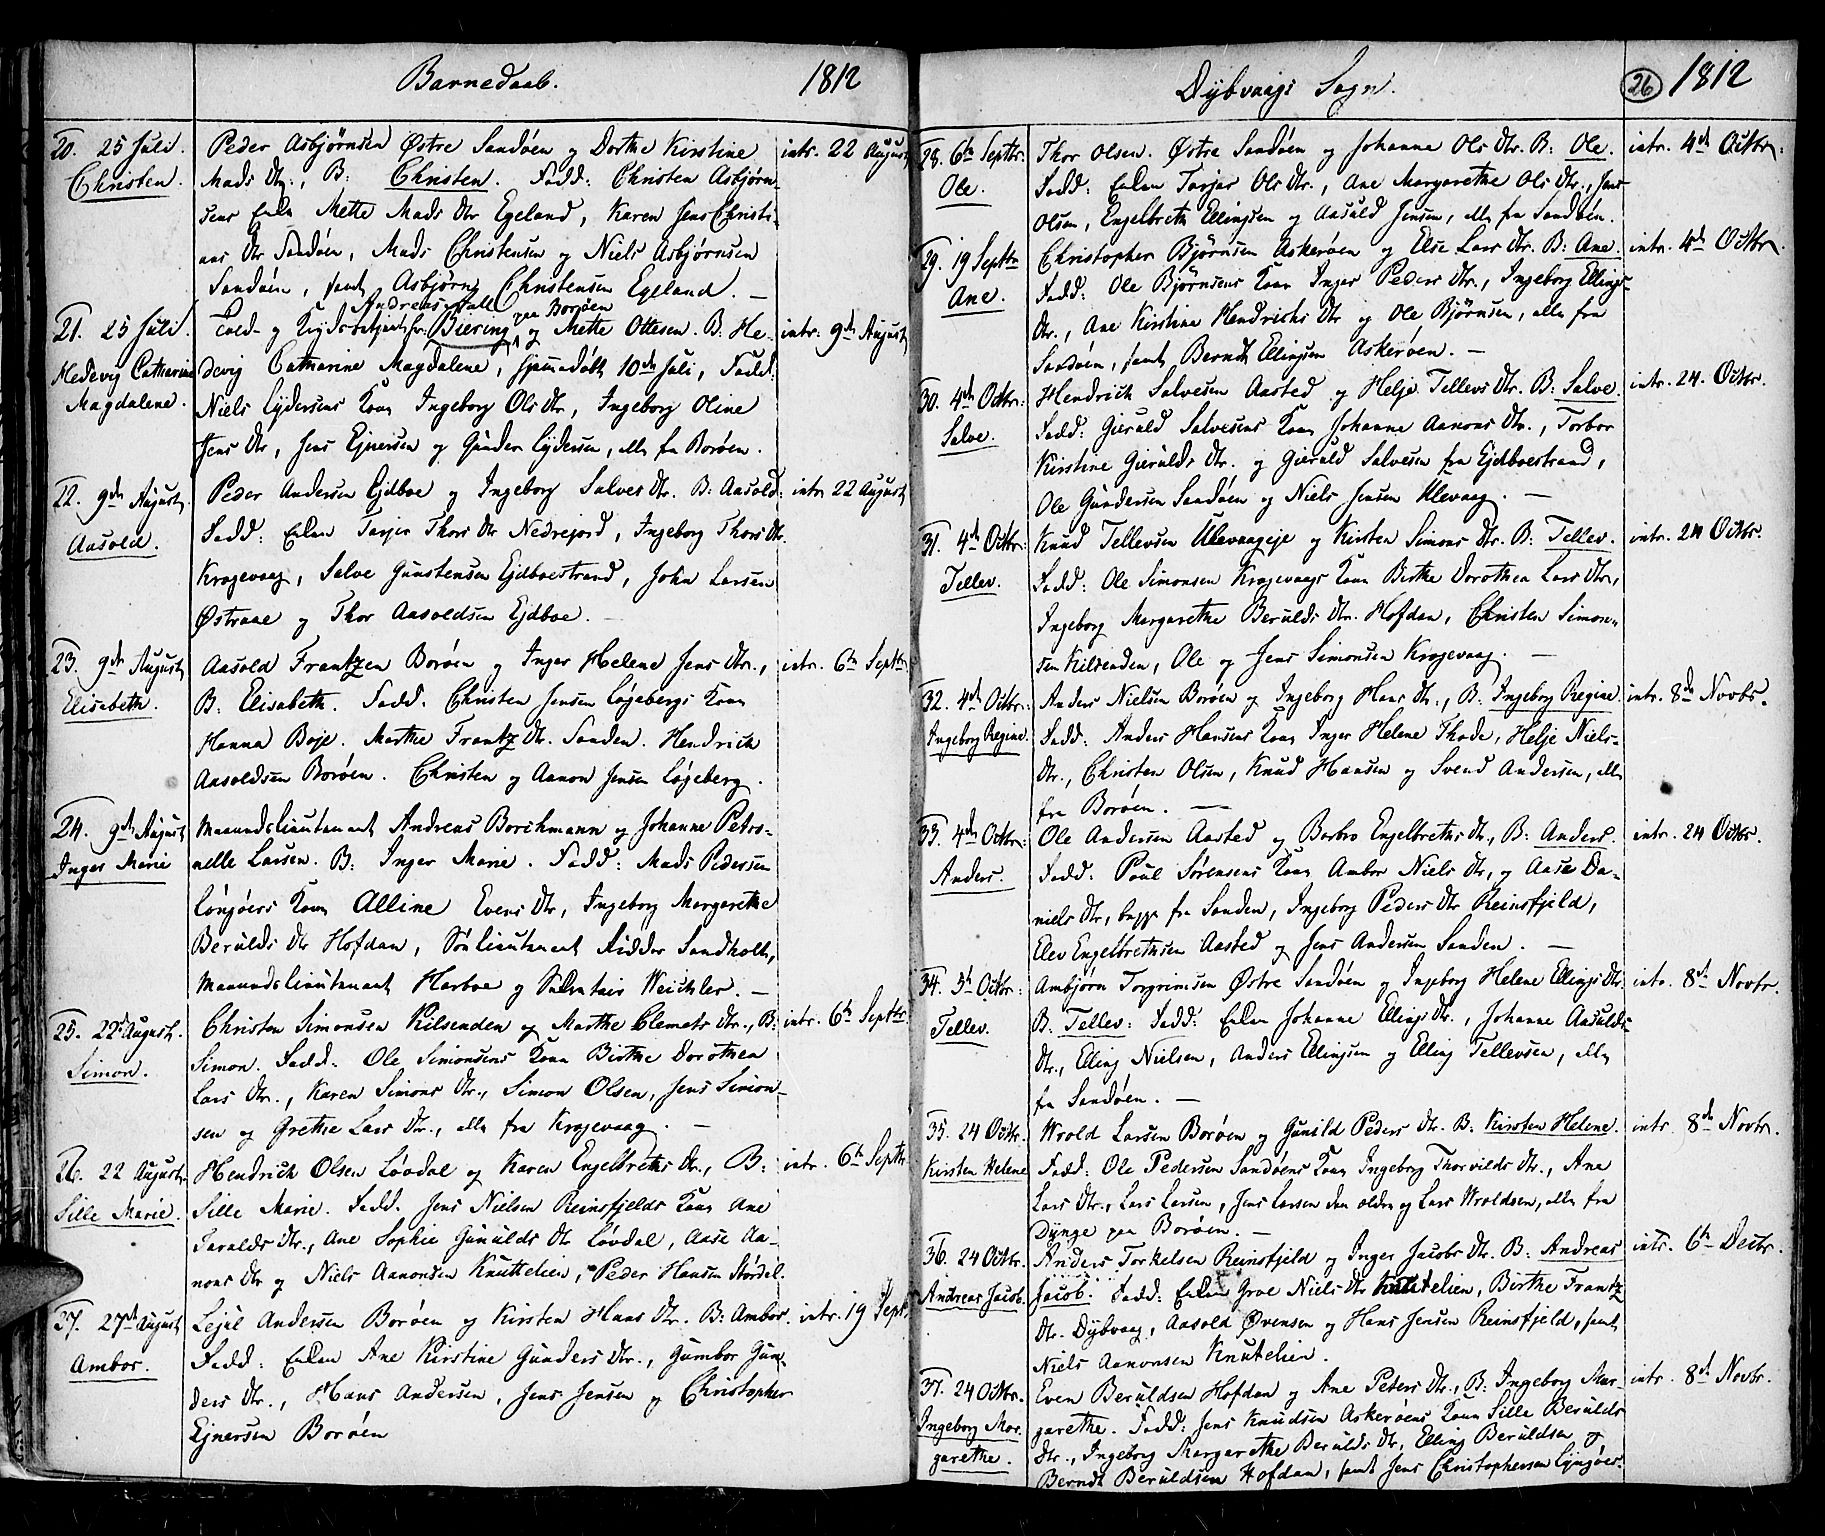 Barnedaab. 1812
20. 25 Juli. Christen.
Peder Asbjørnsen Østre Sandøen og Dorthe Kirstine intr. 22 August
Mads Dtr., B: Christen. Fadd: Christen Asbjørn-
sens Enke Mette Mads Dtr Egeland, Karen Jens Christi-
ans Dtr Sandøen, Mads Christensen og Niels Asbjørnsen
Sandøen, samt Asbjørn Christensen Egeland. —
21. 25 Juli. Hedevig Catharine Magdalene.
Andreas paa Borøen
Told- og Biering og Mette Ottesen. B. He- intr. 9de August
devig Catharine Magdalene, hjemmedøbt 10de Juli, Fadd:
Niels Eydersens Kone Ingeborg Ols Dtr, Ingeborg Oline
Jens Dtr, Jens Ejnersen og Gunder Eydersen, alle fra Borøen.
22. 9de August. Aasold.
Peder Andersen Ejdboe og Ingeborg Salves Dtr. B: Aasold: intr 22 August
Fadd: Enken Tarjer Thors Dtr Nedrejord, Ingeborg Thors Dtr.
Krogevaag, Salve Gunstensen Ejdboestrand, John Larsen
Østraae og Thor Aasoldsen Ejdboe. —
23. 9de August Elisabeth.
Aasold Frantzen Borøen og Inger Helene Jens Dtr., intr. 6te Septbr
B: Elisabeth. Fadd. Christen Jensen Løgebergs Kone
Hanna Boje. Marthe Frantz Dtr. Sanden. Hendrich
Aasoldsen Borøen. Christen og Aanon Jensen Løgeberg.
24. 9de August Inger Marie
Maanedslieutenant Andreas Borchmann og Johanne Petro-
nelle Larsen. B: Inger Marie. Fadd: Mads Pedersen
Lyngøers Kone Alline Evens Dtr, Ingeborg Margarethe
Berulds Dtr Hofdan, Sølieutenant Ridder Sandholt,
Maanedslieutenant Harboe og Weichler. —
25. 22de August. Simon.
Christen Simonsen Kilsenden og Marthe Clemets Dtr., B: intr. 6te Septbr.
Simon. Fadd. Ole Simonsens Kone Birthe Dorothea
Lars Dtr., Karen Simons Dtr., Simon Olsen, Jens Simon-
sen og Grethe Lars Dtr., alle fra Krogevaag. —
26. 22 August. Sille Marie.
Hendrich Olsen Løvdal og Karen Engelbreths Dtr., B: intr. 6te Septbr
Sille Marie. Fadd. Jens Nielsen Reinsfjelds Kone Ane
Taralds Dtr., Ane Sophie Gunulds Dtr Løvdal, Aase Aa-
nons Dtr og Niels Aanonsen Knuttelien, Peder Hansen Stordal.
27. 27de August Ambor.
Lejul Andersen Borøen og Kirsten Hans Dtr. B: Ambor. intr. 19 Septr.
Fadd: Enken Ane Kirstine Gunders Dtr., Gumbor Gun-
ders Dtr., Hans Andersen, Jens Jensen og Christopher
Ejnersen Borøen
Dybvaags Sogn. 26 1812
28. 6te Septbr. Ole.
Thor Olsen. Østre Sandøen og Johanne Ols Dtr. B: Ole. intr. 4de Octbr.
Fadd: Enken Tarjer Ols Dtr., Ane Margarethe Ols Dtr., Jens
Olsen, Engelbreth Ellingsen og Aasuld Jensen, alle fra Sandøen.
29. 19 Septbr Ane.
Christopher Bjørnsen Askerøen og Else Lars Dtr. B: Ane. intr. 4de Octbr.
Fadd: Ole Bjørnsens Kone Inger Peders Dtr., Ingeborg Ellings
Dtr., Ane Kirstine Hendrichs Dtr og Ole Bjørnsen, alle fra
Sandøen, samt Berndt Ellingsen Askerøen. —
30. 4de Octbr: Salve.
Hendrich Salvesen Aasted og Helje Tellevs Dtr. B: Salve. intr. 24. Octbr.
Fadd: Gieruld Salvesens Kone Johanne Aanons Dtr., Torbor
Kirstine Gierulds Dtr. og Gieruld Salvesen fra Ejdboestrand,
Ole Gundersen Sandøen og Niels Jensen Ulevaag. —
31. 4de Octbr: Tellev.
Knud Tellevsen Ulevaageje og Kirsten Simons Dtr. B: Tellev. intr. 24 Octbr.
Fadd: Ole Simonsen Krogevaags Kone Birthe Dorothea Lars Dtr.,
Ingeborg Margarethe Berulds Dtr. Hofdan, Christen Simon-
sen Kilsenden, Ole og Jens Simonsen Krogevaag. —
32. 4de Octbr: Ingeborg Regine.
Anders Nielsen Borøen og Ingeborg Hans Dtr., B: Ingeborg Regine intr. 8de Novbr.
Fadd: Anders Hansens Kone Inger Helene Thode, Helje Niels-
Dtr., Christen Olsen, Knud Hansen og Svend Andersen, alle
fra Borøen. —
33. 4de Octbr: Anders.
Ole Andersen Aasted og Barbro Engelbreths Dtr., B: Anders. intr. 24 Octbr.
Fadd. Poul Sørensens Kone Ambor Niels Dtr, og Aase Da-
niels Dtr, begge fra Sanden, Ingeborg Peders Dtr Reinsfjeld,
Elev Engelbrethsen Aasted og Jens Andersen Sanden. —
34. 5te Octbr: Tellev.
Ambjørn Torgrimsen Østre Sandøen og Ingeborg Helene Ellings Dtr. intr. 8de Novbr.
B: Tellev: Fadd: Enken Johanne Ellings Dtr., Johanne Aasulds
Dtr., Elling Nielsen, Anders Ellingsen og Elling Tellevsen, alle
fra Sandøen. —
35. 24 Octbr. Kirsten Helene
Wrold Larsen Borøen og Gunild Peders Dtr. B: Kirsten Helene. intr. 8de Novbr.
Fadd: Ole Pedersen Sandøens Kone Ingeborg Thorvilds Dtr., Ane
Lars Dtr., Lars Larsen, Jens Larsen den ældre og Lars Wroldsen, alle fra
Dynge paa Borøen. —
36. 24 Octbr. Andreas Jacob.
Anders Torkelsen Reinsfjeld og Inger Jacobs Dtr. B: Andreas intr. 6te Decbr.
Jacob. Fadd: Enken Groe Niels Dtr Knutelien, Birthe Frantz
Dtr. Dybvaag, Aasold Øvensen og Hans Jensen Reinsfjeld, samt
Niels Aanonsen Knutelien.
37. 24 Octbr. Ingeborg Mar- garethe.
Even Beruldsen Hofdan og Ane Peters Dtr., B: Ingeborg Mar- intr. 8de Novbr.
garethe. Fadd: Jens Knudsen Askerøens Kone Sille Berulds
Dtr., Ingeborg Margarethe Berulds Dtr, Elling Beruldsen og
Berndt Beruldsen Hofdan, samt Jens Christophersen Lyngøer.